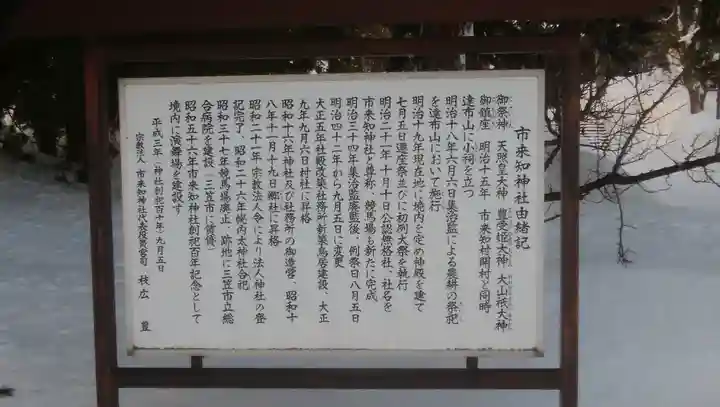 市来知神社由緒記
御祭神 天照皇大神 豊受姫大神 大山祇大神
御鎮座 明治十五年 市来知村開村と同時
達布山に小祠を立つ
明治十八年六月六日集治監による農耕の祭祀
を達布山において施行
明治十九年現在地に境内を定め神殿を建て
七月五日遷座祭並びに初例大祭を執行
明治二十一年十月十日公認無格社、社名を
市来知神社と尊称、競馬場も新たに完成
明治三十四年集治監廃監後、例祭日八月五日
明治四十二年から九月五日に変更
大正五年社殿改築社務所新築鳥居建設、大正
九年九月六日村社に昇格
昭和十六年神社及び社務所の御造営、昭和十
八年十一月十九日郷社に昇格
昭和二十一年宗教法人令により法人神社の登
記完了、昭和二十六年幌内太神社合祀
昭和三十七年競馬場廃止、跡地に三笠市立総
合病院を建設(三笠市に賃貸)
昭和五十六年市来知神社創祀百年記念として
境内に演舞場を建設す
平成三年(神社創祀百十年)九月五日
宗教法人 市来知神社代表役員宮司 枝広 豊